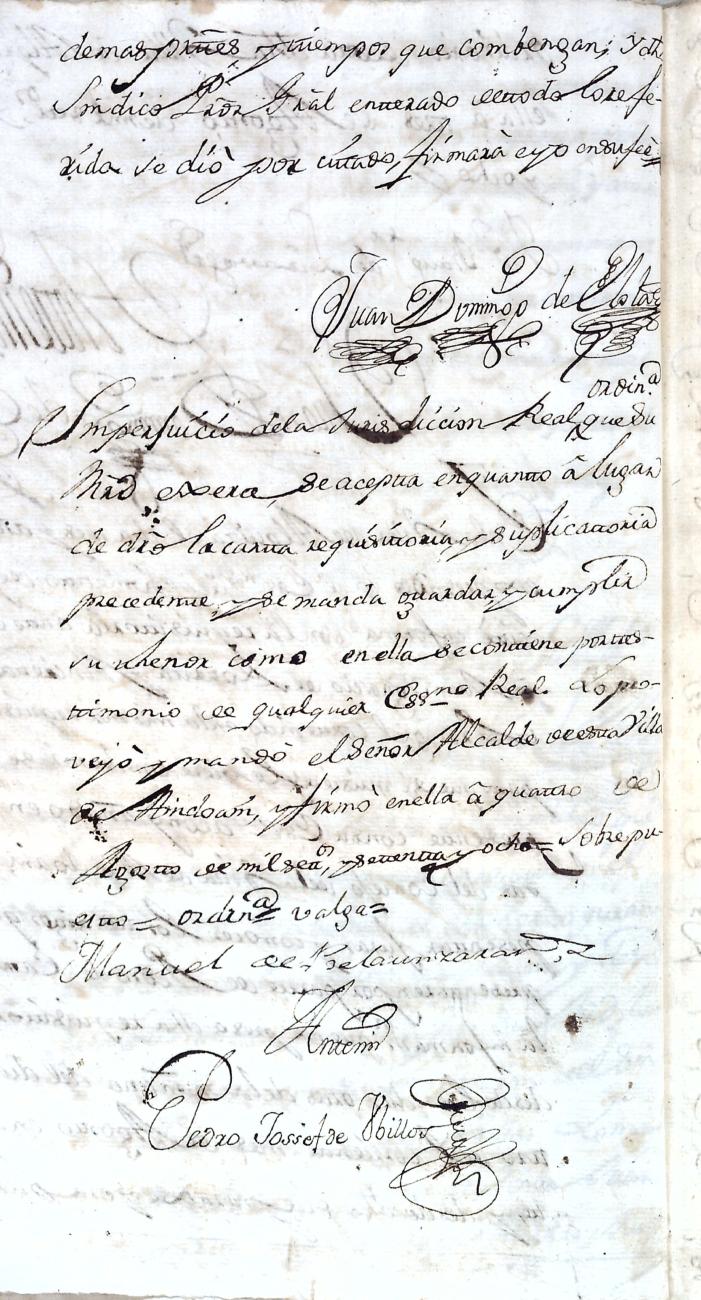 demas prttes y tiempos que combengan, y dho
Sindico Pror Gral entterado de ttodo lo refe-
rido se diò por cittado, firmarà e yo en su feè=
Juan Domingo de
ordina
Simperjuicio de la Jurisdiccion Real que su
Mrd exerce, se aceptta en quantto â lugar
de dro la cartta requisittoria, y suplicattoria
precedentte, y se manda guardar, y cumplir
su thenor como en ella se conttiene por ttes-
ttimonio de qualquier Essno Real. Lo pro-
veyò, y mandò el Señor Alcalde de estta Villa
de Aindoain, y firmò en ella â quattro de
Agostto de mil settos, y settentta y ocho= Sobre pu-
estto= ordina= valga=
Manuel de Belaunzaran
Antemi
Pedro Jossef de Ubillos